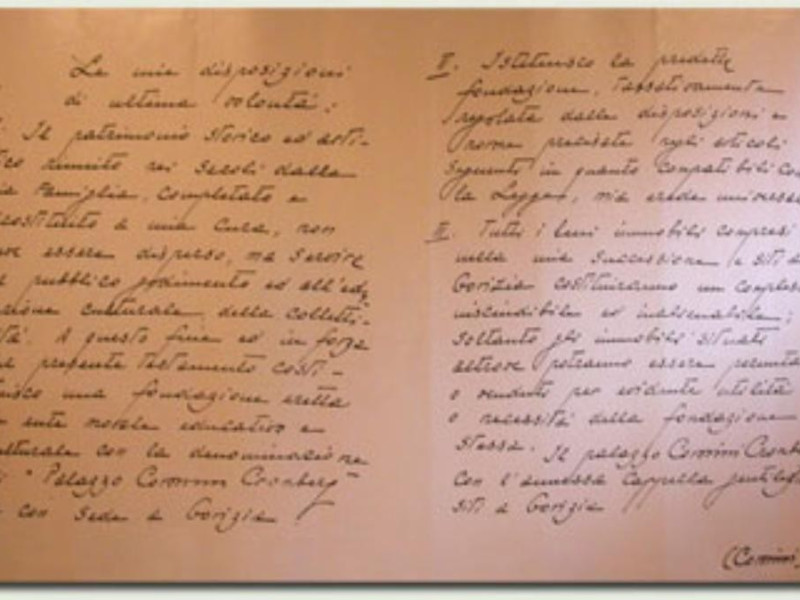 Le mie disposizioni
di ultima volontà:
. Il patrimonio storico ed arti-
co riunito nei secoli dalla
ia Famiglia, completato e
costituito a mia cura, non
essere disperso, ma servire
pubblico godimento ed all'edu
zione culturale della colletti-
tà. A questo fine ed in forza
presente testamento costi-
uisco una fondazione eretta
ente morale educativo e
ulturale con la denominazione
" Palazzo Coronini Cronberg "
con sede a Gorizia.
II. Istituisco la predetta
fondazione, tassativamente
regolata dalle disposizioni e
norme precisate negli articoli
seguenti in quanto compatibili con
la Legge, mia erede universale
II. Tutti i beni immobili compresi
nella mia successione e siti a
Gorizia costituiranno un complesso
inscindibile ed inalienabile;
soltanto gli immobili situati
altrove potranno essere permutati
o venduti per evidente utilità
o necessità della fondazione
stessa. Il palazzo Coronini Cronb
con l'annessa Cappella gentilizia
siti a Gorizia